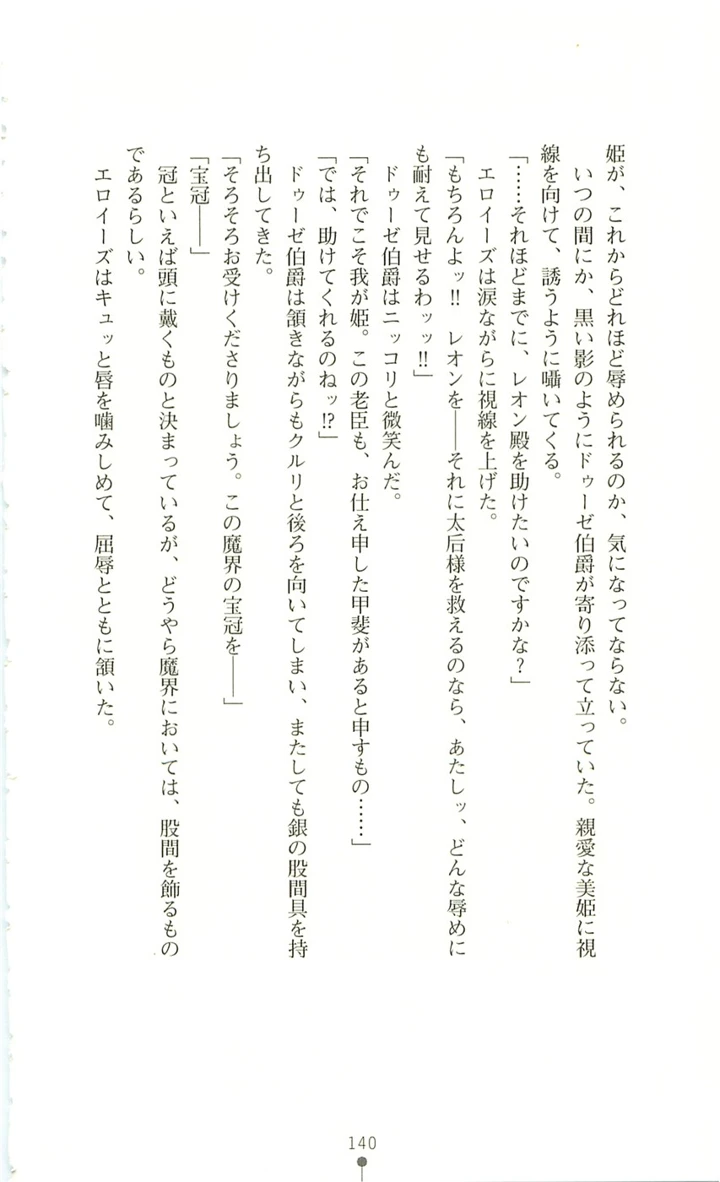 姫が、これからどれほど辱められるのか、気になってならない。
いつの間にか、黒い影のようにドゥーゼ伯爵が寄り添って立っていた。親愛な美姫に視
線を向けて、誘うように囁いてくる。
「……それほどまでに、レオン殿を助けたいのですかな？」
エロイーズは涙ながらに視線を上げた。
「もちろんよッ‼ レオンを――それに太后様を救えるのなら、あたしッ、どんな辱めに
も耐えて見せるわッッ‼」
ドゥーゼ伯爵はニッコリと微笑んだ。
「それでこそ我が姫。この老臣も、お仕え申した甲斐があると申すもの……」
「では、助けてくれるのねッ⁉」
ドゥーゼ伯爵は頷きながらもクルリと後ろを向いてしまい、またしても銀の股間具を持
ち出してきた。
「そろそろお受けくださりましょう。この魔界の宝冠を――」
「宝冠――」
冠といえば頭に戴くものと決まっているが、どうやら魔界においては、股間を飾るもの
であるらしい。
エロイーズはキュッと唇を噛みしめて、屈辱とともに頷いた。
140